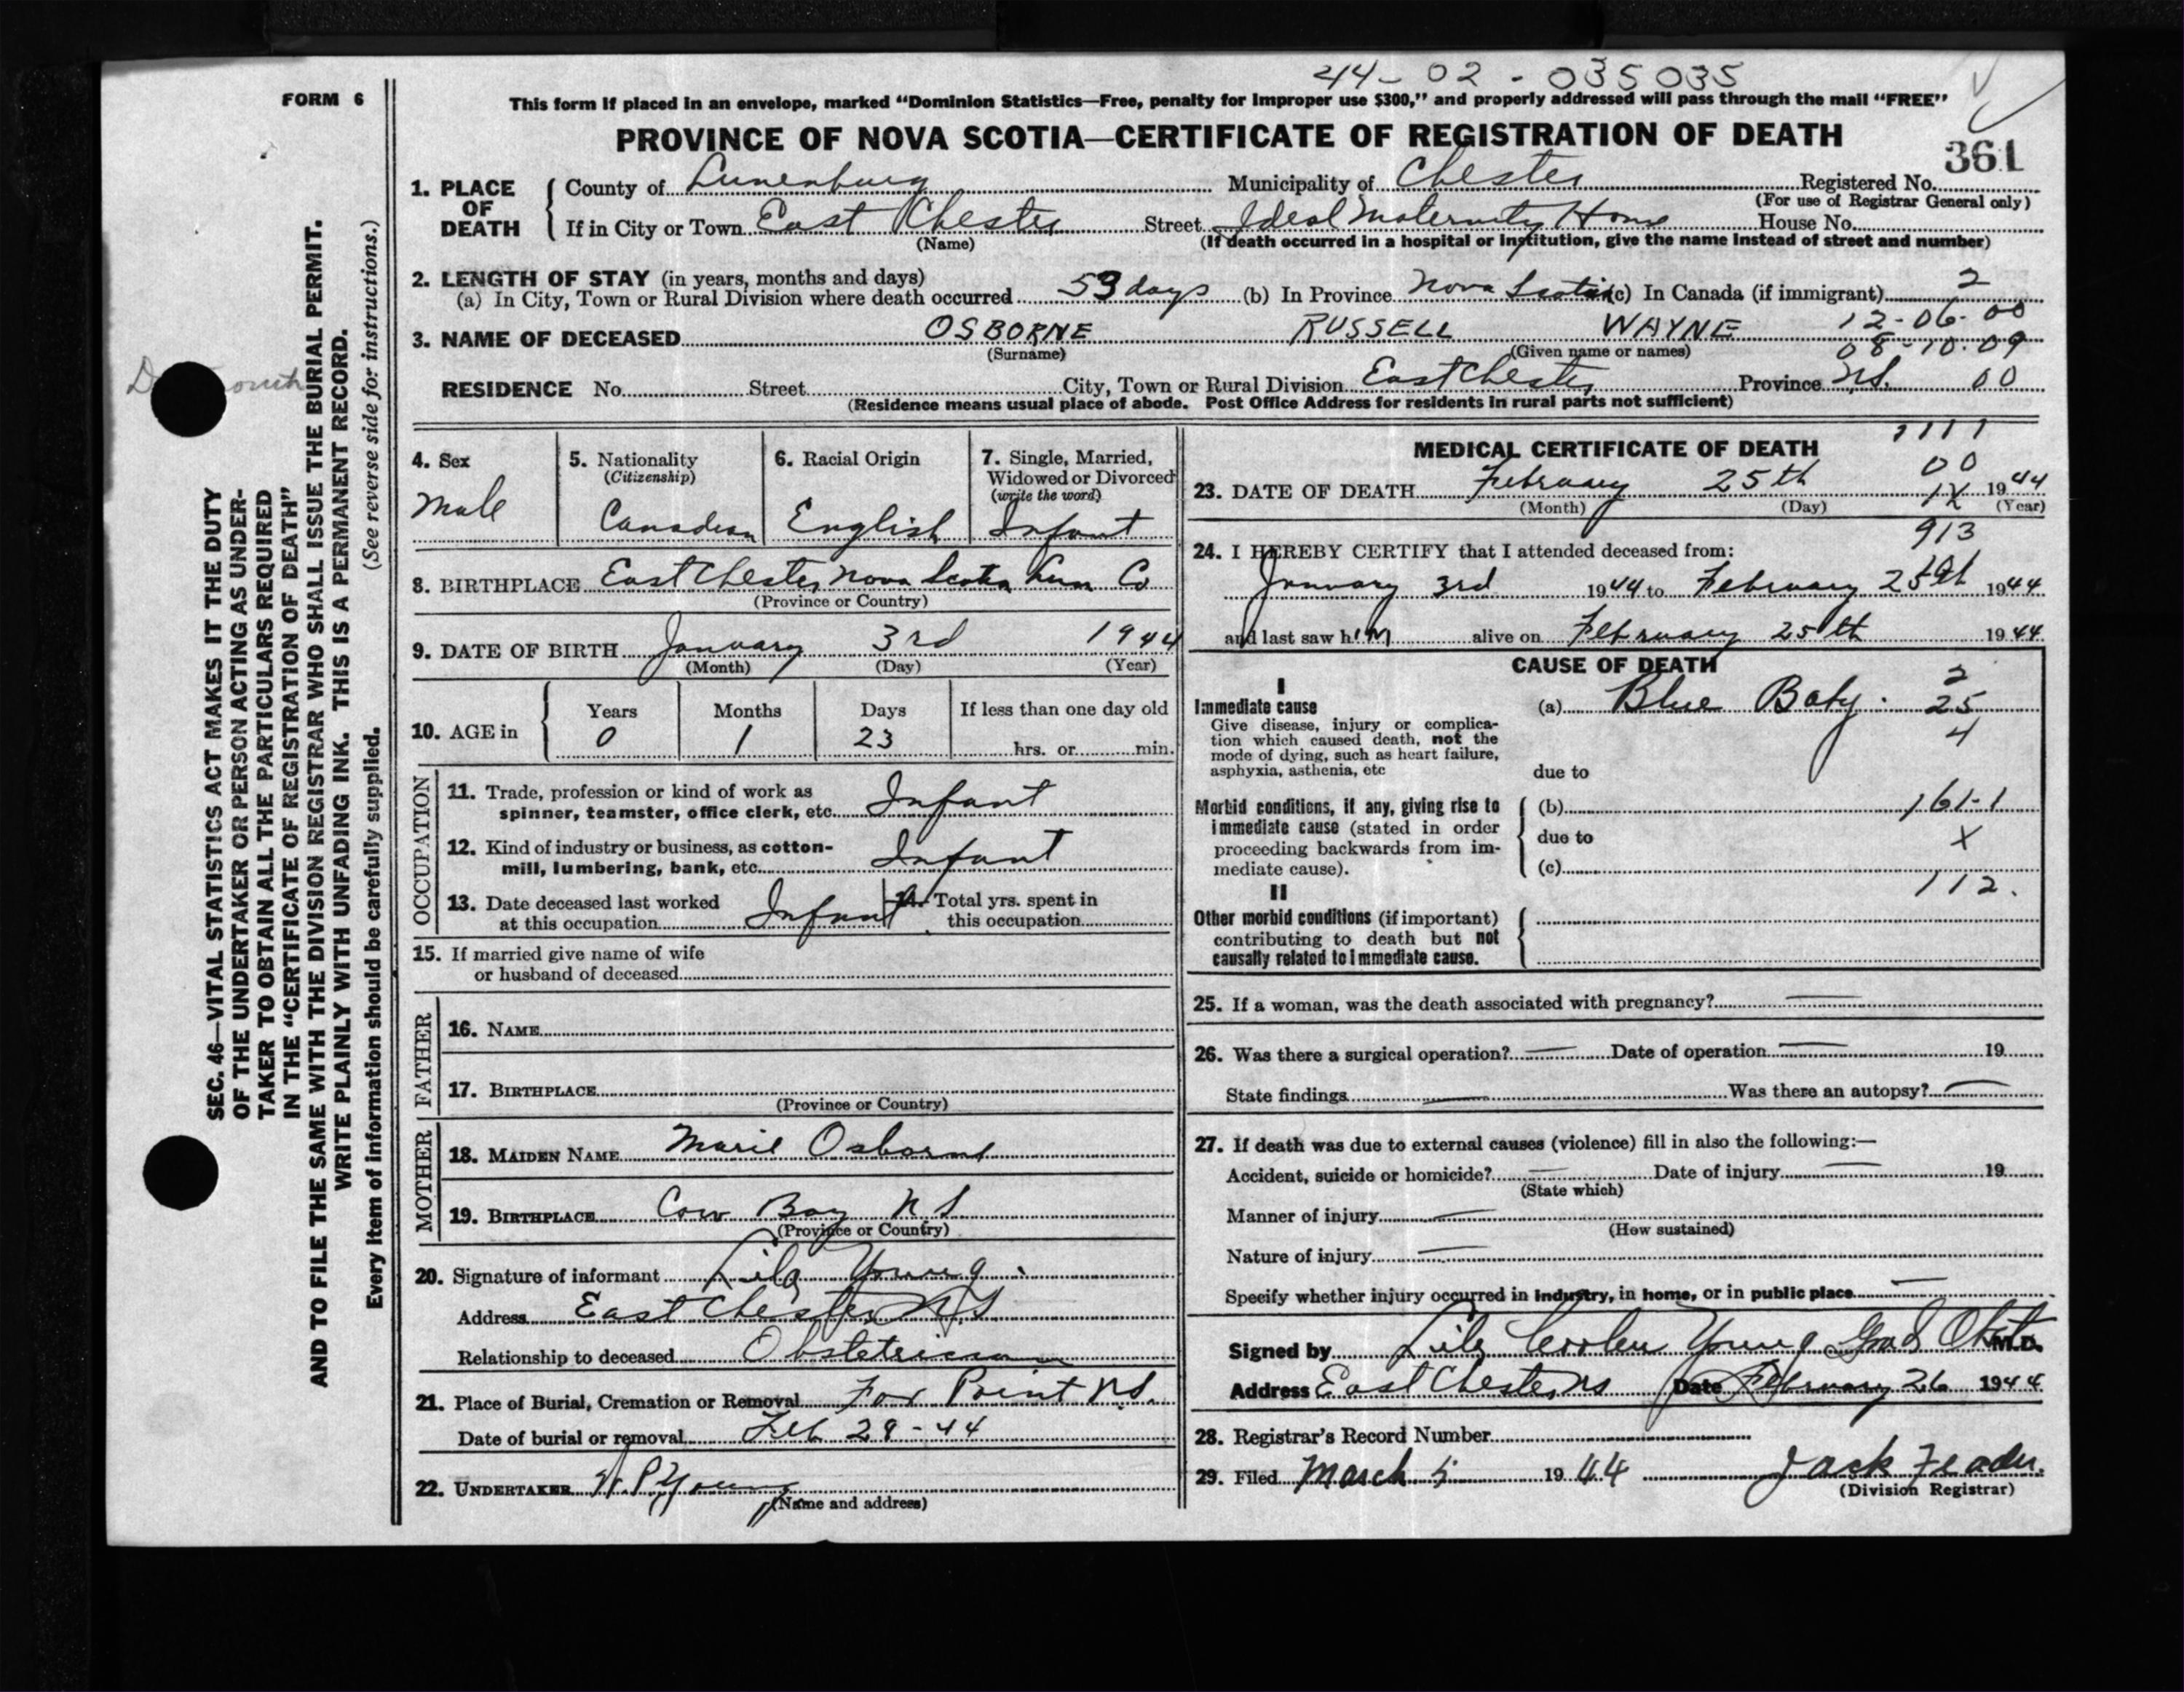 44-02-035035
FORM 6
This form if placed in an envelope, marked "Dominion Statistics—Free, penalty for improper use $300," and properly addressed will pass through the mail "FREE"
PROVINCE OF NOVA SCOTIA—CERTIFICATE OF REGISTRATION OF DEATH
361
1. PLACE OF DEATH
County of Lunenburg Municipality of Chester Registered No.
(For use of Registrar General only)
If in City or Town East Chester Street Ideal Maternity Home House No.
(Name) (If death occurred in a hospital or institution, give the name instead of street and number)
2. LENGTH OF STAY (in years, months and days)
(a) In City, Town or Rural Division where death occurred 53 days (b) In Province Nova Scotia (c) In Canada (if immigrant) 2
12-06-00
3. NAME OF DECEASED OSBORNE RUSSELL WAYNE
(Surname) (Given name or names) 08-10-09
RESIDENCE No. Street City, Town or Rural Division East Chester Province N.S. 00
(Residence means usual place of abode. Post Office Address for residents in rural parts not sufficient)
4. Sex
Male
5. Nationality
(Citizenship)
Canadian
6. Racial Origin
English
7. Single, Married,
Widowed or Divorced
(write the word)
Infant
8. BIRTHPLACE East Chester Nova Scotia Lun Co
(Province or Country)
9. DATE OF BIRTH January 3rd 1944
(Month) (Day) (Year)
10. AGE in
Years Months Days If less than one day old
0 1 23 hrs. or min.
OCCUPATION
11. Trade, profession or kind of work as
spinner, teamster, office clerk, etc. Infant
12. Kind of industry or business, as cotton-
mill, lumbering, bank, etc. Infant
13. Date deceased last worked
at this occupation Infant
14. Total yrs. spent in
this occupation
15. If married give name of wife
or husband of deceased
FATHER
16. NAME
17. BIRTHPLACE
(Province or Country)
MOTHER
18. MAIDEN NAME Marie Osborne
19. BIRTHPLACE Cow Bay N S
(Province or Country)
20. Signature of informant Lila Young
Address East Chester N S
Relationship to deceased Obstetrician
21. Place of Burial, Cremation or Removal Fox Point N.S.
Date of burial or removal Feb 29-44
22. UNDERTAKER W.P. Young
(Name and address)
1111
MEDICAL CERTIFICATE OF DEATH
00
23. DATE OF DEATH February 25th 1944
(Month) (Day) (Year)
913
24. I HEREBY CERTIFY that I attended deceased from:
January 3rd 1944 to February 25th 1944
and last saw him alive on February 25th 1944
CAUSE OF DEATH
I
Immediate cause
Give disease, injury or complica-
tion which caused death, not the
mode of dying, such as heart failure,
asphyxia, asthenia, etc
(a) Blue Baby.
2
25
4
due to
Morbid conditions, if any, giving rise to
immediate cause (stated in order
proceeding backwards from im-
mediate cause).
(b) 161-1
due to X
(c)
112.
II
Other morbid conditions (if important)
contributing to death but not
causally related to immediate cause.
25. If a woman, was the death associated with pregnancy? —
26. Was there a surgical operation? — Date of operation — 19
State findings — Was there an autopsy? —
27. If death was due to external causes (violence) fill in also the following:—
Accident, suicide or homicide? — Date of injury — 19
(State which)
Manner of injury —
(How sustained)
Nature of injury —
Specify whether injury occurred in industry, in home, or in public place —
Signed by Lila Coolen Young Grad Obst M.D.
Address East Chester NS Date February 26 1944
28. Registrar's Record Number
29. Filed March 5 1944 Jack
(Division Registrar)
SEC. 46—VITAL STATISTICS ACT MAKES IT THE DUTY
OF THE UNDERTAKER OR PERSON ACTING AS UNDER-
TAKER TO OBTAIN ALL THE PARTICULARS REQUIRED
IN THE "CERTIFICATE OF REGISTRATION OF DEATH"
AND TO FILE THE SAME WITH THE DIVISION REGISTRAR WHO SHALL ISSUE THE BURIAL PERMIT.
WRITE PLAINLY WITH UNFADING INK. THIS IS A PERMANENT RECORD.
Every item of information should be carefully supplied. (See reverse side for instructions.)